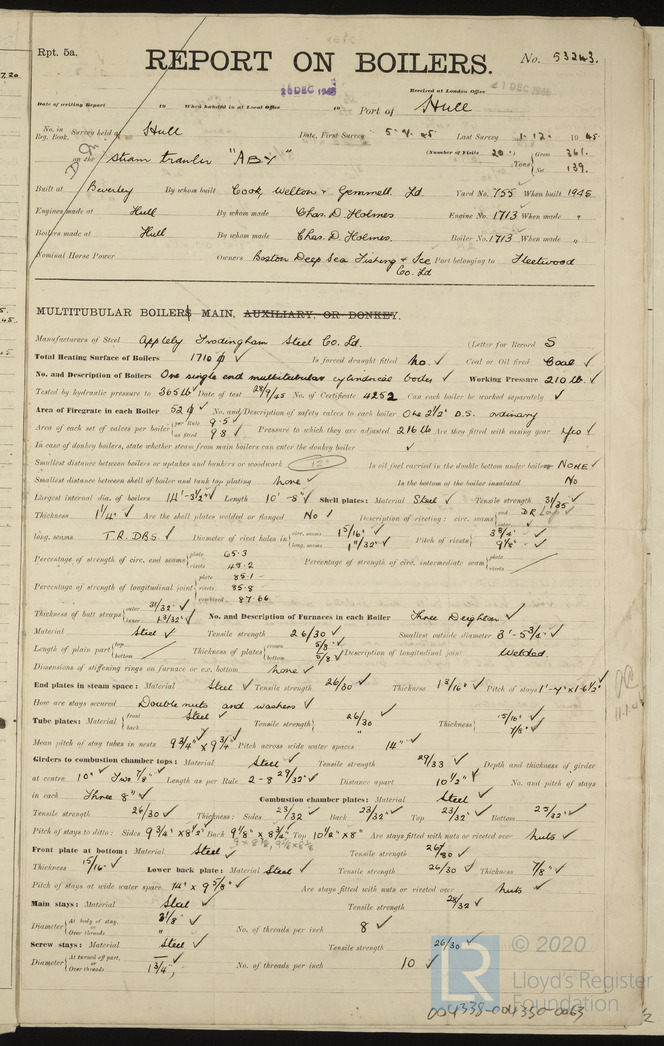 Rpt. 5a.
REPORT ON BOILERS.
No. 53243.
26 DEC 1945
Received at London Office
Date of writing Report 19 When handed in at Local Office 19 Port of Hull
No. in Reg. Book. Survey held at Hull Date, First Survey 5.4.45 Last Survey 1.12. 1945
on the Steam trawler "ABY" (Number of Visits 20) Tons Gross 361. Net 139.
Built at Beverley By whom built Cook, Welton & Gemmell Ld. Yard No. 755 When built 1945
Engines made at Hull By whom made Chas. D. Holmes. Engine No. 1713 When made "
Boilers made at Hull By whom made Chas. D. Holmes. Boiler No. 1713 When made "
Nominal Horse Power Owners Boston Deep Sea Fishing & Ice Co. Ld Port belonging to Fleetwood
MULTITUBULAR BOILERS MAIN, AUXILIARY, OR DONKEY.
Manufacturers of Steel Appleby Frodingham Steel Co. Ld. (Letter for Record S
Total Heating Surface of Boilers 1710 ✓ Is forced draught fitted No. ✓ Coal or Oil fired Coal ✓
No. and Description of Boilers One single end multitubular cylindrical boiler ✓ Working Pressure 210 lb. ✓
Tested by hydraulic pressure to 365 lb ✓ Date of test 28/9/45 No. of Certificate 4252 Can each boiler be worked separately ✓
Area of Firegrate in each Boiler 52 ✓ No. and Description of safety valves to each boiler One 2½" D.S. ordinary
Area of each set of valves per boiler {per Rule 9.5 ✓ as fitted 9.8 ✓ Pressure to which they are adjusted 216 lb Are they fitted with easing gear Yes ✓
In case of donkey boilers, state whether steam from main boilers can enter the donkey boiler ✓
Smallest distance between boilers or uptakes and bunkers or woodwork 12" Is oil fuel carried in the double bottom under boilers NONE ✓
Smallest distance between shell of boiler and tank top plating none ✓ Is the bottom of the boiler insulated No
Largest internal dia. of boilers 14'-3½" ✓ Length 10'-8" ✓ Shell plates: Material Steel ✓ Tensile strength 31/35 ✓
Thickness 1¼" ✓ Are the shell plates welded or flanged No ✓ Description of riveting: circ. seams {end D.R. Lap ✓ inter.
long. seams T.R. D.B.S. ✓ Diameter of rivet holes in {circ. seams 1 5/16" ✓ long. seams 1 11/32" ✓ Pitch of rivets { 3 3/4" ✓ 9 1/8" ✓
Percentage of strength of circ. end seams {plate 65.3 rivets 43.2 Percentage of strength of circ. intermediate seam {plate rivets
Percentage of strength of longitudinal joint {plate 85.1 rivets 85.8 combined 87.66
Thickness of butt straps {outer 31/32" ✓ inner 1 3/32" ✓ No. and Description of Furnaces in each Boiler Three Deighton ✓
Material Steel ✓ Tensile strength 26/30 ✓ Smallest outside diameter 3'-5¾" ✓
Length of plain part {top bottom Thickness of plates {crown 5/8" ✓ bottom 5/8 ✓ Description of longitudinal joint Welded.
Dimensions of stiffening rings on furnace or c.c. bottom none ✓
End plates in steam space: Material Steel ✓ Tensile strength 26/30 ✓ Thickness 1 3/16" ✓ Pitch of stays 1'-4" x 1-6½"
How are stays secured Double nuts and washers ✓
Tube plates: Material {front Steel ✓ back " Tensile strength { 26/30 ✓ " Thickness { 15/16" ✓ 7/8" ✓
Mean pitch of stay tubes in nests 9¾" x 9¾" ✓ Pitch across wide water spaces 14" ✓
Girders to combustion chamber tops: Material Steel ✓ Tensile strength 29/33 ✓ Depth and thickness of girder
at centre 10" ✓ Two 7/8" ✓ Length as per Rule 2-8 29/32" ✓ Distance apart 10½" ✓ No. and pitch of stays
in each Three 8" ✓ Combustion chamber plates: Material Steel ✓
Tensile strength 26/30 ✓ Thickness: Sides 23/32 ✓ Back 23/32" ✓ Top 23/32 ✓ Bottom 25/32 ✓
Pitch of stays to ditto: Sides 9¾" x 8½" ✓ Back 9⅛" x 8¾" ✓ Top 10½" x 8" ✓ Are stays fitted with nuts or riveted over Nuts ✓
Front plate at bottom: Material Steel ✓ Tensile strength 26/30 ✓
Thickness 15/16" ✓ Lower back plate: Material Steel ✓ Tensile strength 26/30 ✓ Thickness 7/8" ✓
Pitch of stays at wide water space 14" x 9⅝" ✓ Are stays fitted with nuts or riveted over Nuts ✓
Main stays: Material Steel ✓ Tensile strength 28/32 ✓
Diameter {At body of stay, or Over threads 3⅛" ✓ " No. of threads per inch 8 ✓
Screw stays: Material Steel ✓ Tensile strength 26/30 ✓
Diameter {At turned off part, or Over threads 1¾" ✓ No. of threads per inch 10 ✓
LR
© 2020
Lloyd's Register
Foundation
004338-004350-0063